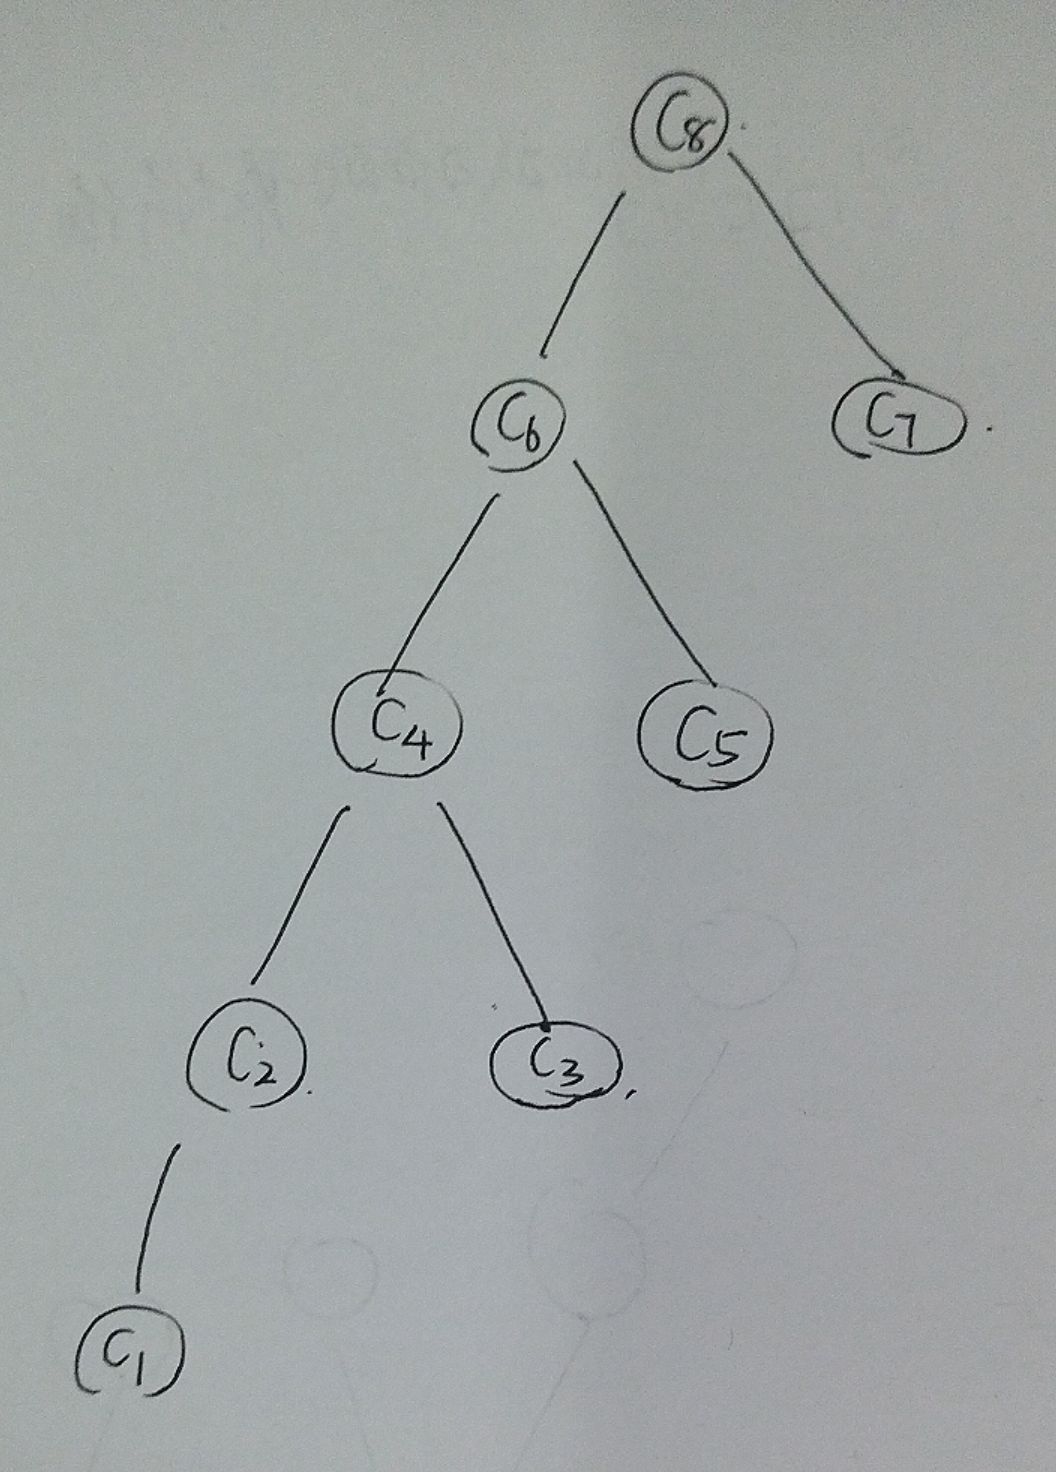 C8
C6
C7
C4
C5
C2
C3
C1